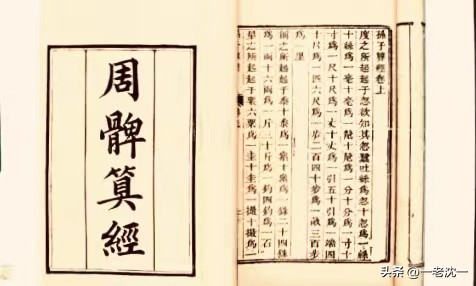 周髀算經
孫子算經卷上
度之所起起于忽欲知其忽蠶吐絲爲忽十忽爲一
絲十絲爲一毫十毫爲一氂十氂爲一分十分爲一寸十
寸爲一尺十尺爲一丈十丈爲一引五十引爲一端四
十尺爲一匹六尺爲一步二百四十步爲一畝三百步
爲一里
稱之所起起于黍十黍爲一絫十絫爲一銖二十四銖
爲一兩十六兩爲一斤三十斤爲一鈞四鈞爲一石
量之所起起于粟六粟爲一圭十圭爲一撮十撮爲一
头条 @一老沈一